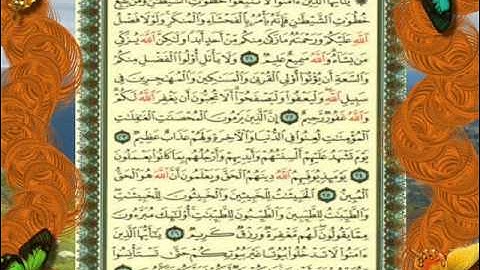 يَٰٓأَيُّهَا ٱلَّذِينَ ءَامَنُوا۟ لَا تَتَّبِعُوا۟ خُطُوَٰتِ ٱلشَّيْطَٰنِ وَمَن يَتَّبِعْ
خُطُوَٰتِ ٱلشَّيْطَٰنِ فَإِنَّهُۥ يَأْمُرُ بِٱلْفَحْشَآءِ وَٱلْمُنكَرِ وَلَوْلَا فَضْلُ
ٱللَّهِ عَلَيْكُمْ وَرَحْمَتُهُۥ مَا زَكَىٰ مِنكُم مِّنْ أَحَدٍ أَبَدًا وَلَٰكِنَّ ٱللَّهَ يُزَكِّى
مَن يَشَآءُ وَٱللَّهُ سَمِيعٌ عَلِيمٌ ٢١ وَلَا يَأْتَلِ أُو۟لُوا۟ ٱلْفَضْلِ مِنكُمْ
وَٱلسَّعَةِ أَن يُؤْتُوٓا۟ أُو۟لِى ٱلْقُرْبَىٰ وَٱلْمَسَٰكِينَ وَٱلْمُهَٰجِرِينَ فِى
سَبِيلِ ٱللَّهِ وَلْيَعْفُوا۟ وَلْيَصْفَحُوٓا۟ أَلَا تُحِبُّونَ أَن يَغْفِرَ ٱللَّهُ لَكُمْ
وَٱللَّهُ غَفُورٌ رَّحِيمٌ ٢٢ إِنَّ ٱلَّذِينَ يَرْمُونَ ٱلْمُحْصَنَٰتِ ٱلْغَٰفِلَٰتِ
ٱلْمُؤْمِنَٰتِ لُعِنُوا۟ فِى ٱلدُّنْيَا وَٱلْءَاخِرَةِ وَلَهُمْ عَذَابٌ عَظِيمٌ ٢٣
يَوْمَ تَشْهَدُ عَلَيْهِمْ أَلْسِنَتُهُمْ وَأَيْدِيهِمْ وَأَرْجُلُهُم بِمَا كَانُوا۟ يَعْمَلُونَ
٢٤ يَوْمَئِذٍ يُوَفِّيهِمُ ٱللَّهُ دِينَهُمُ ٱلْحَقَّ وَيَعْلَمُونَ أَنَّ ٱللَّهَ هُوَ ٱلْحَقُّ
ٱلْمُبِينُ ٢٥ ٱلْخَبِيثَٰتُ لِلْخَبِيثِينَ وَٱلْخَبِيثُونَ لِلْخَبِيثَٰتِ
وَٱلطَّيِّبَٰتُ لِلطَّيِّبِينَ وَٱلطَّيِّبُونَ لِلطَّيِّبَٰتِ أُو۟لَٰٓئِكَ مُبَرَّءُونَ
مِمَّا يَقُولُونَ لَهُم مَّغْفِرَةٌ وَرِزْقٌ كَرِيمٌ ٢٦ يَٰٓأَيُّهَا ٱلَّذِينَ
ءَامَنُوا۟ لَا تَدْخُلُوا۟ بُيُوتًا غَيْرَ بُيُوتِكُمْ حَتَّىٰ تَسْتَأْنِسُوا۟